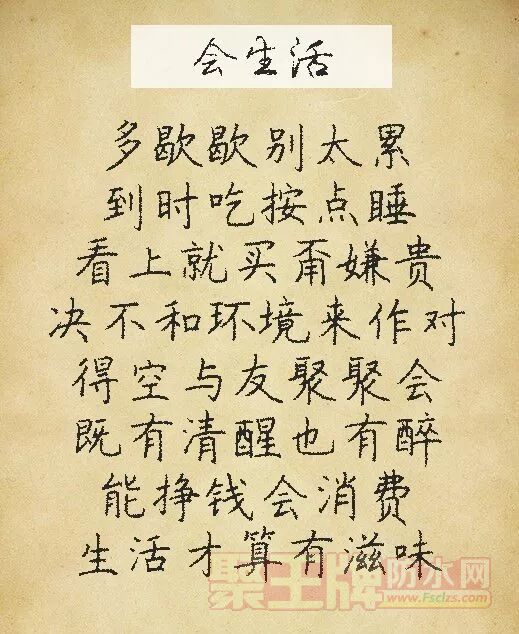 会生活
多歇歇别太累
到时吃按点睡
看上就买甭嫌贵
决不和环境来作对
得空与友聚聚会
既有清醒也有醉
能挣钱会消费
生活才算有滋味
聚王牌防水网
www.Fsclzs.com